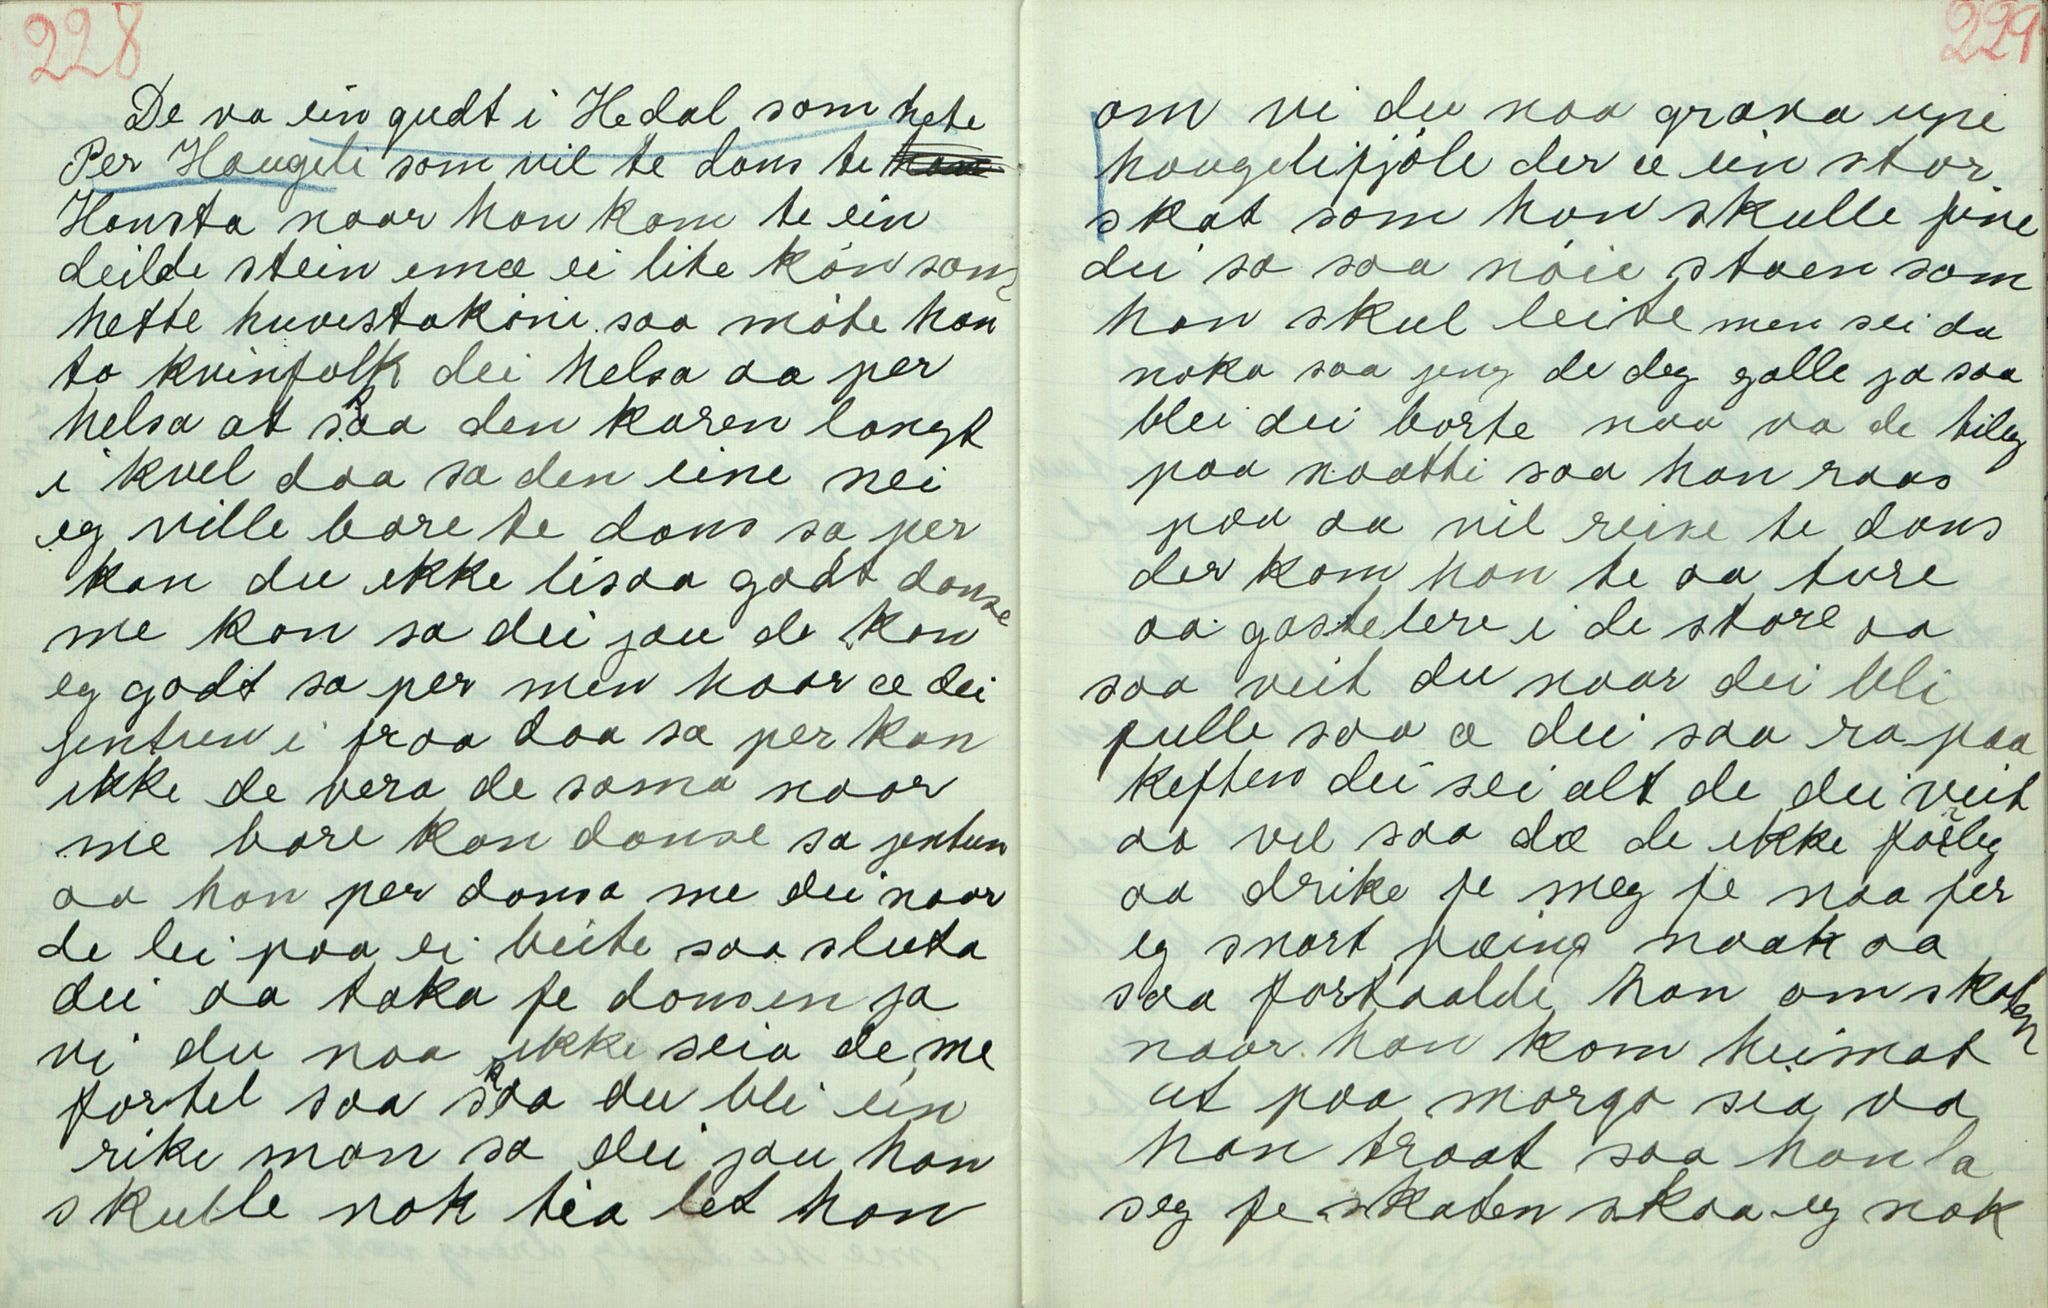 228
De va ein gudt i Hedal som hete
Per Haugeli som vil te dans te
Hansta naar han kam te ein
deilde stein emæ ei lite kón som
hette huvestakóni saa móte han
to kvinfolk dei helsa aa per
helsa at skaa den karen langt
i kvel daa sa den eine nei
eg ville bare te dans sa per
kan du ikke lisaa godt danse
me kan sa dei jau de kan
eg godt sa per men haar æ dei
jentun i fraa daa sa per kan
ikke de vera de sama naar
me bare kan danse sa jentun
aa han per dansa me dei naar
de lei paa ei beite saa sluta
dei aa taka fe dansen ja
vi du naa ikke seia de me
fortel saa skaa du bli ein
rike man sa dei jau han
skulle nok tia let han
229
om vi du naa grava une
haugelifjöle der æ ein stor
skat som han skulle fine
dei sa saa nóie staen som
han skul leite men sei du
noka saa jeng de deg galle ja saa
blei dei borte naa va de tileg
paa naatti saa han raas
paa aa vil reise te dans
der kom han te aa ture
aa gastebere i de store aa
saa veit du naar dei bli
fulle saa æ dei saa ra paa
keften dei sei alt de dei veit
aa vel saa dæ de ikke fórleg
aa drike fe meg fe naa fer
eg snart pæing naak aa
saa fortaalde han om skaten
naar han kom heimat
ut paa morgo sia va
han traat saa han la
seg fe skaten skaa eg nok